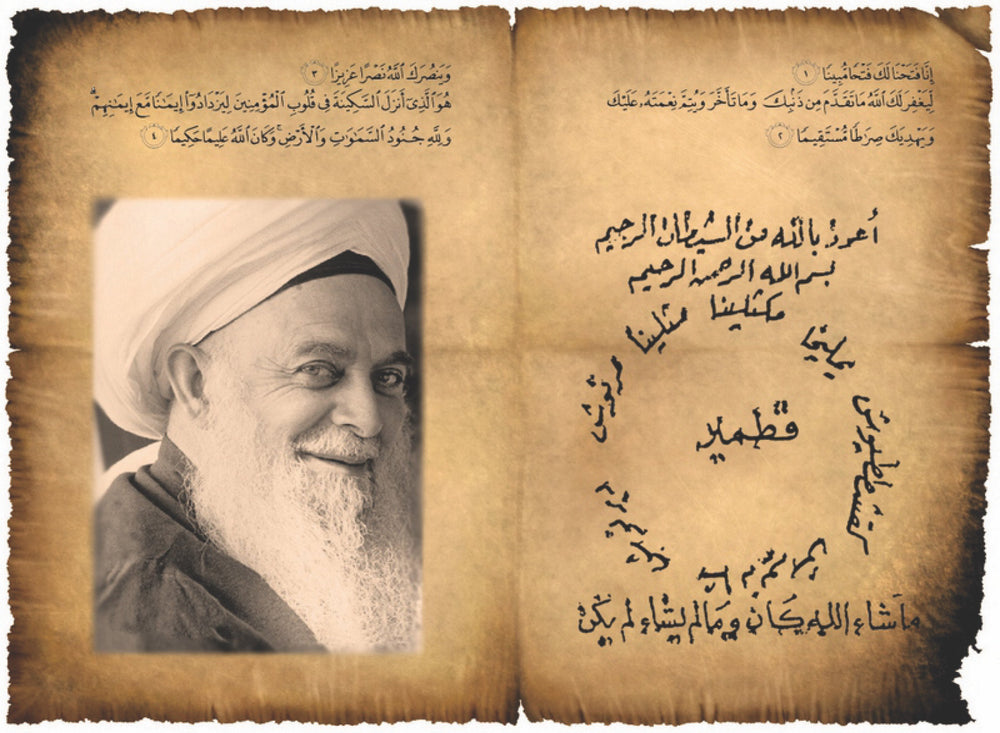 إِنَّا فَتَحْنَا لَكَ فَتْحًا مُّبِينًا ١
لِّيَغْفِرَ لَكَ ٱللَّهُ مَا تَقَدَّمَ مِن ذَنۢبِكَ وَمَا تَأَخَّرَ وَيُتِمَّ نِعْمَتَهُۥ عَلَيْكَ
وَيَهْدِيَكَ صِرَٰطًا مُّسْتَقِيمًا ٢
أعوذ بالله من الشيطان الرجيم
بسم الله الرحمن الرحيم
مكثلينا
مثلينا
يمليخا
مرنوش
قطمير
ماشاء الله كان و مالم يشاء لم يكن
وَيَنصُرَكَ ٱللَّهُ نَصْرًا عَزِيزًا ٣
هُوَ ٱلَّذِىٓ أَنزَلَ ٱلسَّكِينَةَ فِى قُلُوبِ ٱلْمُؤْمِنِينَ لِيَزْدَادُوٓا۟ إِيمَـٰنًا مَّعَ إِيمَـٰنِهِمْ ۗ
وَلِلَّهِ جُنُودُ ٱلسَّمَـٰوَٰتِ وَٱلْأَرْضِ ۚ وَكَانَ ٱللَّهُ عَلِيمًا حَكِيمًا ٤